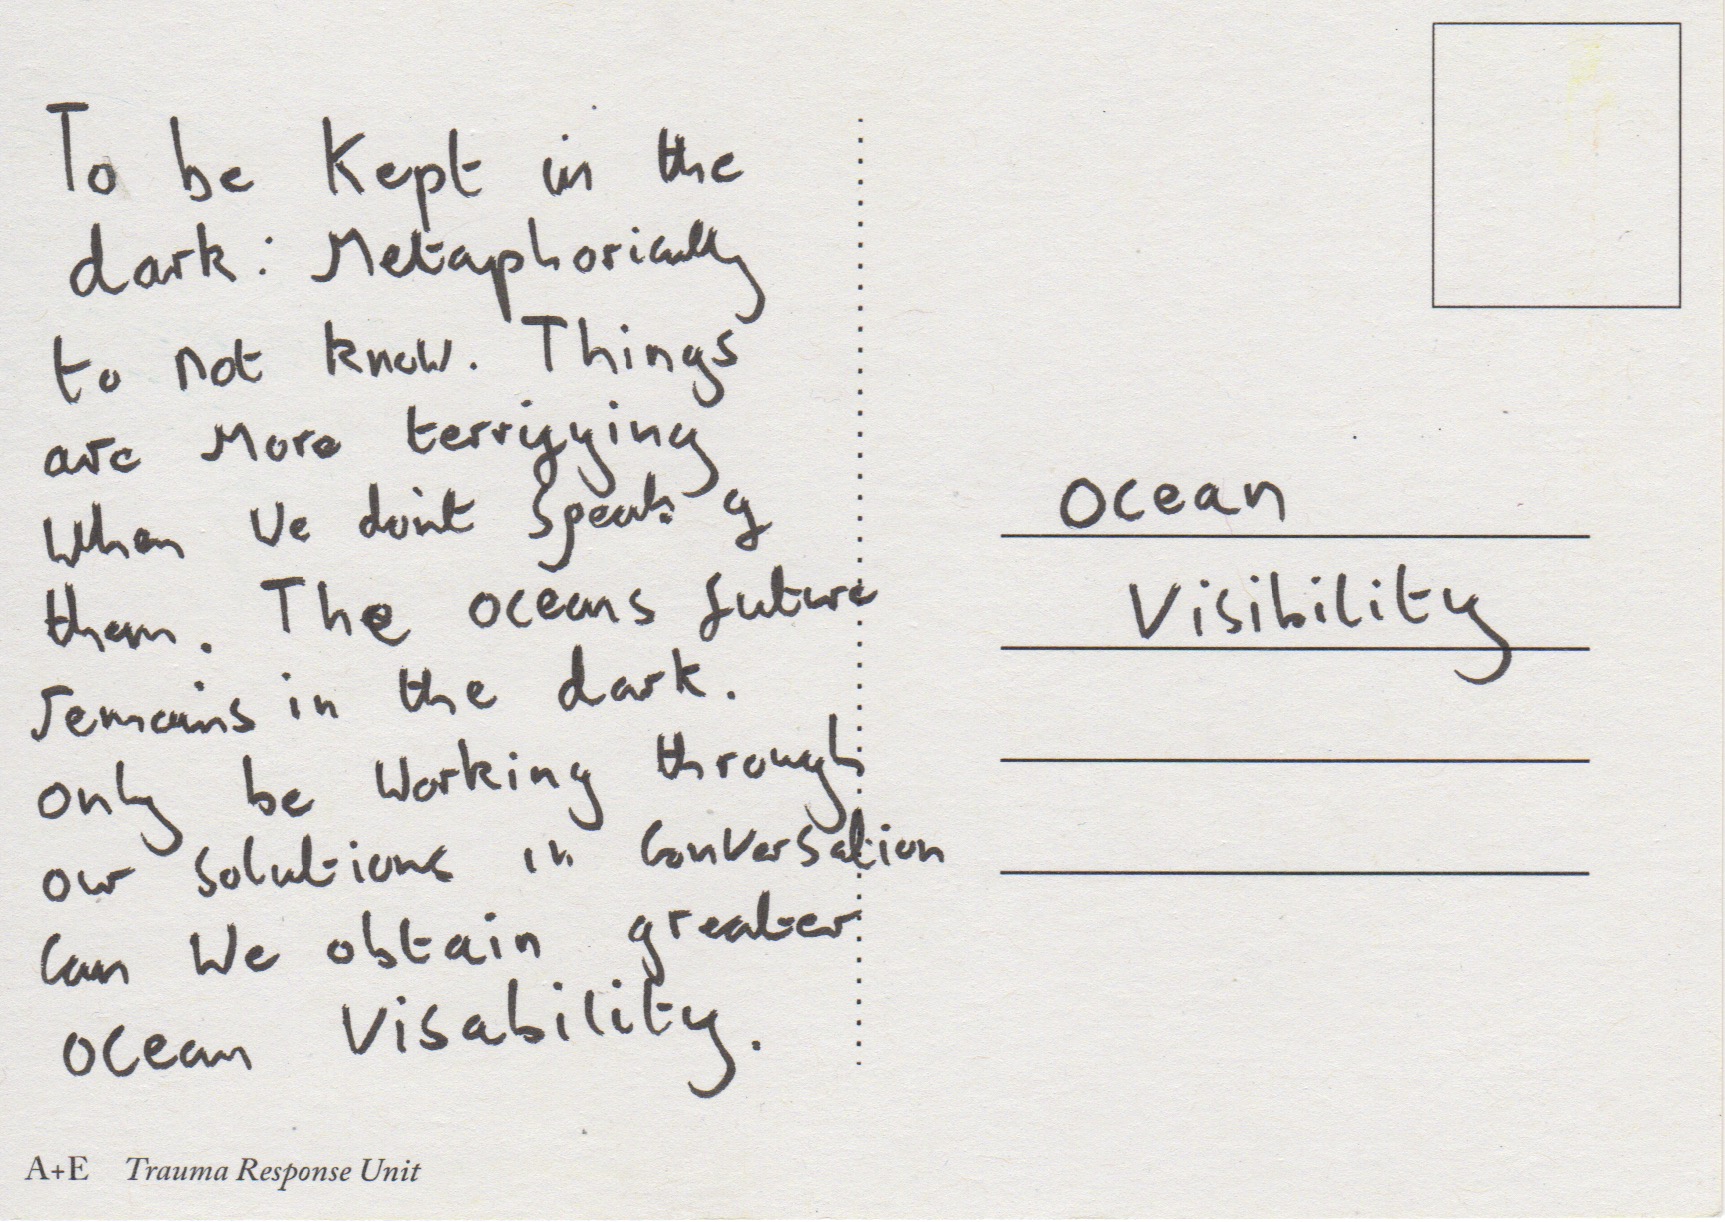 To be Kept in the
dark: Metaphorically
to not know. Things
are More terrifying
When We don't speak of
them. The oceans future
remains in the dark.
only be Working through
our solutions in Conversation
Can We obtain greater
ocean Visability.
A+E Trauma Response Unit
Ocean
Visibility